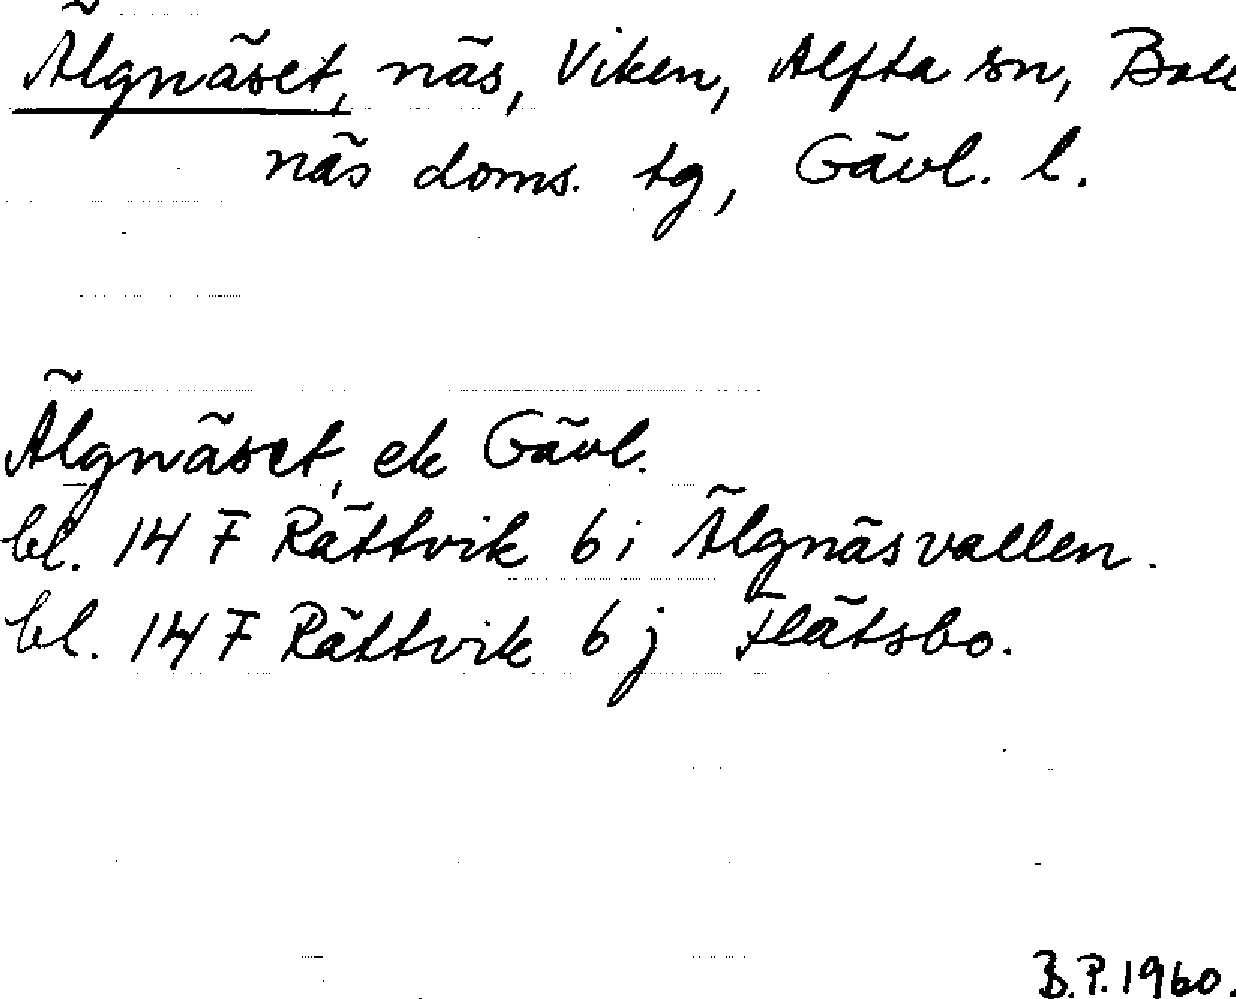 Älgnäset, näs, Viken, Alfta sn, Boll
näs doms. tg, Gävl. l.
Älgnäset, ek Gävl.
bl. 14 F Rättvik 6 i Älgnäsvallen.
bl. 14 F Rättvik 6 j Flätsbo.
B.P. 1960.